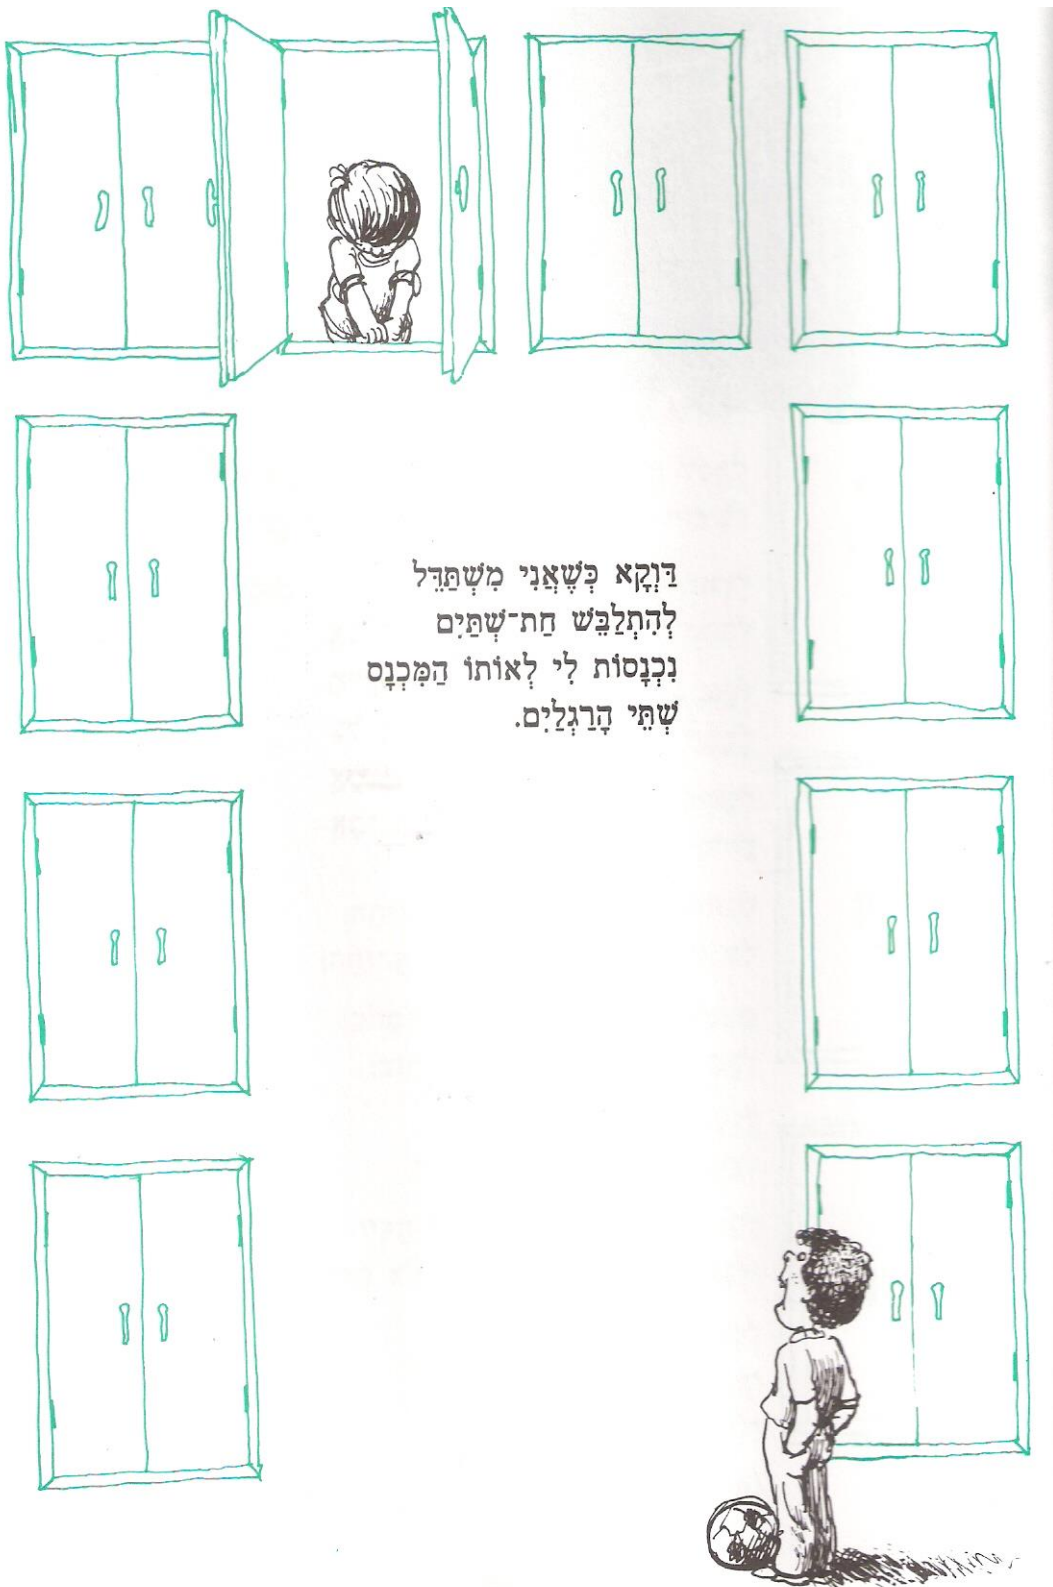 דַּוְקָא כְּשֶׁאֲנִי מִשְׁתַּדֵּל
לְהִתְלַבֵּשׁ חַת־שְׁתַּיִם
נִכְנָסוֹת לִי לְאוֹתוֹ הַמִּכְנָס
שְׁתֵּי הָרַגְלַיִם.